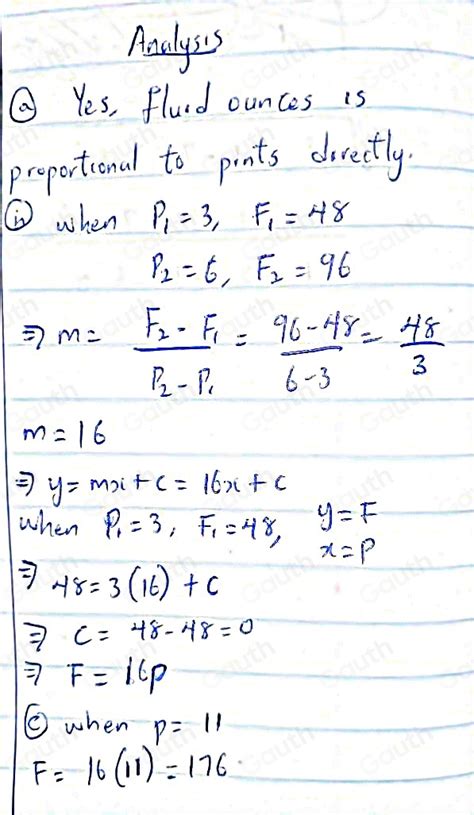 Analysis
ⓐ Yes, fluid ounces is
proportional to pints directly.
ⓘⓘ when P₁ = 3, F₁ = 48
P₂ = 6, F₂ = 96
⇒ m = (F₂ - F₁)/(P₂ - P₁) = (96 - 48)/(6 - 3) = 48/3
m = 16
⇒ y = mx + c = 16x + c
when P₁ = 3, F₁ = 48, y = F
x = P
⇒ 48 = 3(16) + c
⇒ c = 48 - 48 = 0
⇒ F = 16p
ⓒ when p = 11
F = 16(11) = 176.